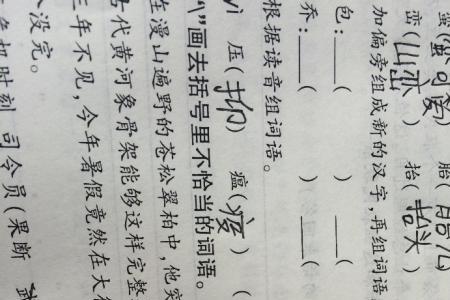 胎(胎儿
峦(山峦) 抬(抬头)
加偏旁组成新的汉字,再组词语
包:____( ) ____(
乔:____( ) ____(
根据读音组词语。
yì 压(抑) 瘟(疫) (
\"画去括号里不恰当的词语。
在漫山遍野的苍松翠柏中,他突
代黄河象骨架能够这样完整
三年不见,今年暑假竟然在大
没完。
机时刻,司令员(果断 武